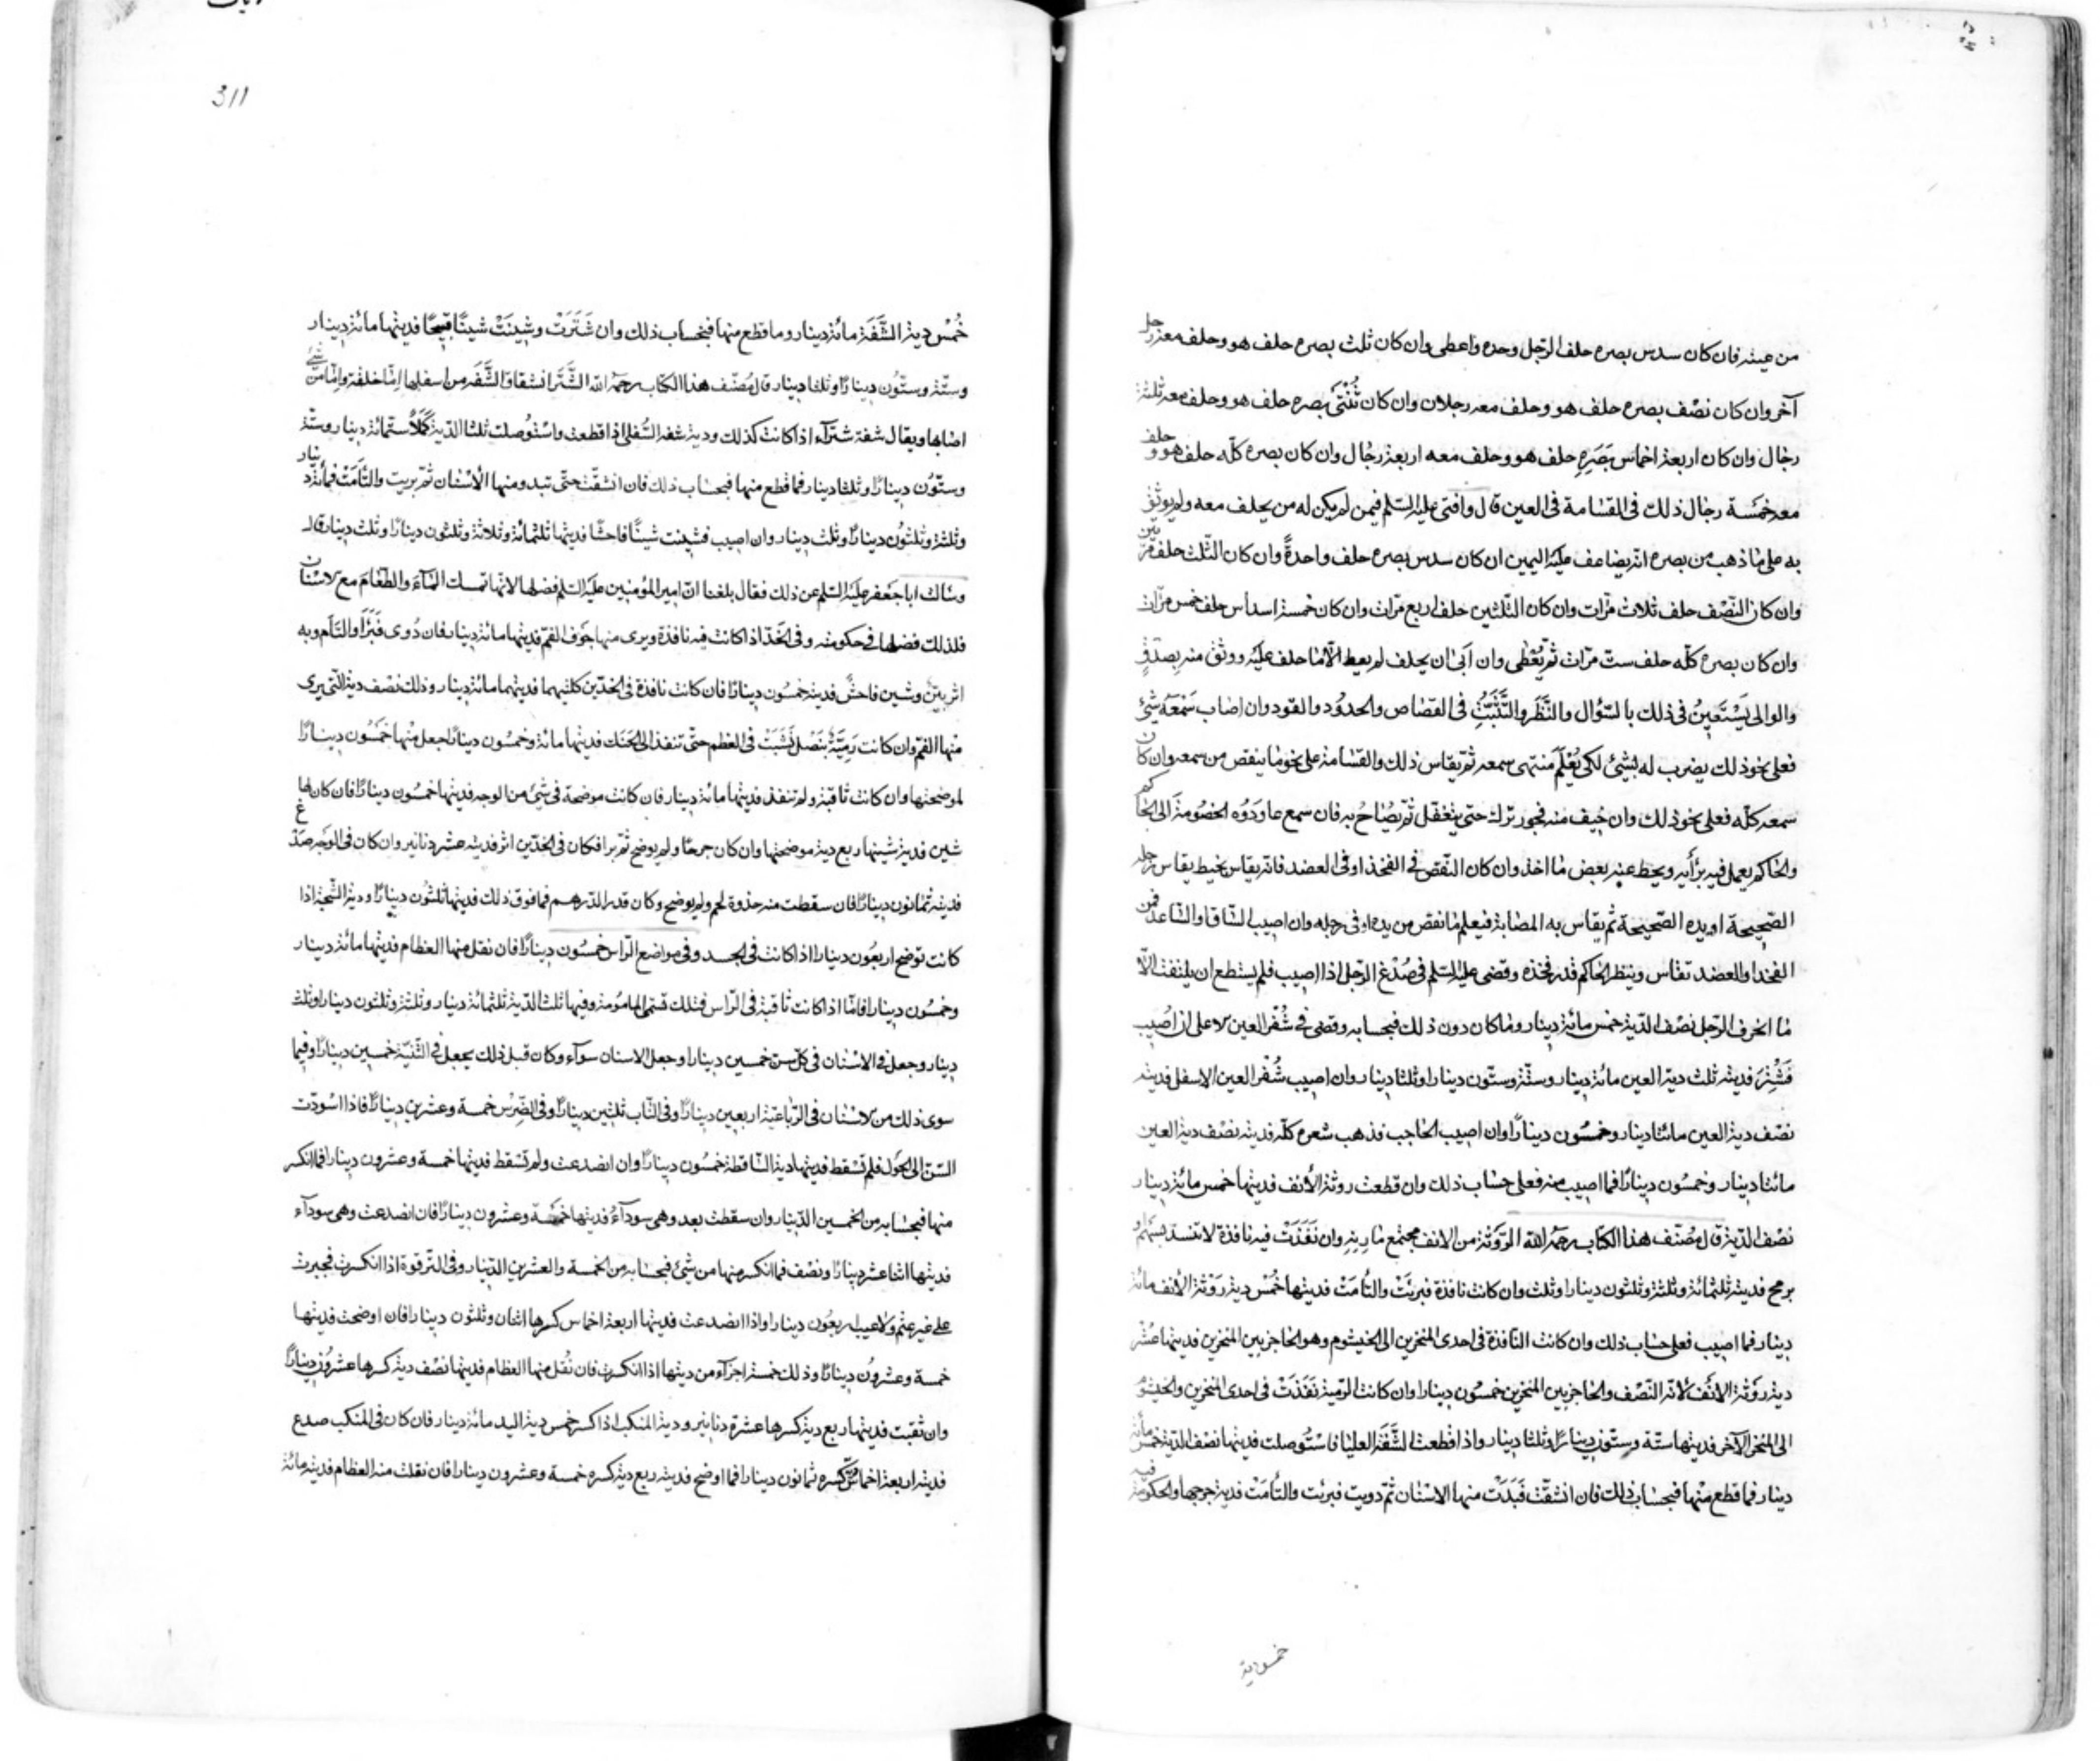 من عينه فان كان سدس بصره حلف الرّجل وحده واعطى وان كان ثلث بصره حلف هو وحلف معه رجل
آخر وان كان نصْف بصره حلف هو وحلف معه رجلان وان كان ثُلْثَىْ بصره حلف هو وحلف معه ثلثة
رجال وان كان اربعة اخماس بَصَرِهِ حلف هو وحلف معه اربعة رجُال وان كان بصره كلّه حلف هو وحلف
معه خمَسة رجال ذلك فى القسَامة فى العين قال وافتى عليه السّلم فيمن لم يكن له من يحلف معه ولم يوثق
به على مَا ذهب من بصره انّه يضاعف عليَه اليمين ان كان سدس بصره حلف واحدةً وان كان الثّلث حلف مرّتين
وان كان النّصْف حلف ثلاث مرّات وان كان الثّلثين حلف اربع مرّات وان كان خمسة اسداس حلف خمس مرّات
وان كان بصره كلّه حلف ستّ مرّات ثم يُعْطى وان اَبىَ ان يحلف لم يعط الّا مَا حلف عليَه ووثق منه بصِدقٍ
والوالى يَسْتَعِينُ فى ذلك بالسّؤال والنَّظَر والتَّثَبُّتِ فى القصَاص والحدوُد والقود وان اصَاب سَمْعَهُ شَئ
فعلى نحو ذلك يضرب له بشئ لكى يُعْلَمَ منتهى سمعه ثم يقاس ذلك والقسَامة على نحو مَا ينقص من سمعه وان كان
سمعه كلّه فعلى نحو ذلك وان خِيف منه فجور ترُك حتى يتغفّل ثم يصُاحُ به فان سمع عاودَوُه الخصُومةَ الى الحَاكم
والحَاكم يعمل فيه برَأيِه ويحطّ عنه بعض مَا اخذ وان كان النّقص فى الفخذ او فى العضد فانّه يقاس بخيط يقاس رجله
الصّحيحة او يده الصّحيحة ثم يقاس به المصَابة فيعلم مَا نقص من يده او فى رجله وان اصيب السّاق او السّاعد فمن
الفخذ او العضد تقاس وينظر الحَاكم قدر فخذه وقضى عليه السّلم فى صُدْغ الرّجل اذا اصيب فلم يستطع ان يلتفت الّا
مَا انحرف الرّجل نصْف الدّية خمس مائة دينار ومَا كان دون ذلك فبحسابه وقضى فى شُفْر العين الاعلى ان اُصُيب
فَشُتِرَ فديته ثلث دية العين مائة دينار وستّة وستّون دينارا وثلثا دينار وان اصيب شُفْر العين الاسفل فديته
نصْف دية العين مائتا دينار وخمسُون دينارًا وان اصيب الحَاجب فذهب شعره كلّه فديته نصْف دية العين
مائتا دينار وخمسُون دينارًا فما اصيب منه فعلى حسَاب ذلك وان قطعت روثة الأنف فديتها خمس مائة دينار
نصْف الدّية قال مصُنّف هذا الكتاب رحمَه الله الرَّوثة من الانف مجتمع مَارِنِهِ وان نَفَذَتْ فيه نافذة لا تنسدّ بسَهْم او
برمح فديته ثلثمائة وثلثة وثلثون دينارا وثلث وان كانت نافذة فبرئَتْ والتُأمَتْ فديتها خُمْس دية رَوْثة الأنف مائة
دينار فما اصيب فعلى حسَاب ذلك وان كانت النّافذة فى احدى المنخرين الى الخيشوم وهو الحَاجز بين المنخرين فديتها عُشْر
دية رَوْثة الانَف لانّه النّصْف والحَاجز بين المنخرين خمسُون دينارا وان كانت الرّمية نَفَذَتْ فى احدى المنخرين والخيشوم
الى المنخر الآخر فديتها ستّة وستّون دينارًا وثلثا دينار واذا قطعت الشَّفَة العليَا فاسْتوُصلت فديتها نصْف الدّية خمس مائة
دينار فما قطع منْها فبحسَاب ذلك فان انشقّت فَبَدَتْ منها الاسْنان ثمّ دويت فبرئت والتأمَتْ فدية جرحها والحكومة فيه
خمس دية
311
خُمْس دية الشَّفَة مائة دينار وما قطع منها فبحسَاب ذلك وان شَتَرَتْ وشِينَتْ شينًا قبيحًا فديتها مائة دينار
وستّة وستّوُن دينارًا وثلثا دينار قال مُصَنّف هذا الكتاب رحمَه الله الشَّتَر انشقاق الشَّفَة من اسفلها امّا خلقة وامّا من شئ
اصَابها ويقال شفة شترآء اذا كانت كذلك ودية شفة السّفلى اذا قطعت واسْتوُصلت ثلثا الدّية كَمَلاً ستّمائة دينار وستّة
وستّوُن دينارًا وثلثا دينار فما قطع منها فبحسَاب ذلك فان انشقّت حتّى تبدو منها الأسْنان ثم بريت والتأمَتْ فمائة دينار
وثلثة وثلثوُن دينارًا وثلث دينار وان اصيب فشينت شينًا فاحشًا فديتها ثلثمائة وثلاثة وثلثون دينارًا وثلث دينار قال
وسَالت ابا جَعْفر عليَه السّلم عن ذلك فقال بلغنا انّ امير المؤمنين عليَه السّلم فضّلها لانّها تمسك المَآء والطّعَام مع الاسْنان
فلذلك فضّلها فى حكومته وفى الخدّ اذا كانت فيه نافذة ويرى منها جوَف الفمّ فديتها مائة دينار فان دُوى فَبَرَأ والتَأم وبه
اثر بيّنٌ وشين فاحشٌ فديته خمسُون دينارًا فان كانت نافذة فى الخدّين كلتيهما فديتهما مائة دينار وذلك نصْف دية الّتى يرى
منْها الفمّ وان كانت رَمِيَّةً بنَصْل نَشَبَتْ فى العظم حتّى تنفذ الى الحَنَك فديتها مائة وخمسُون دينارًا جعل منْها خمَسُون دينارًا
لموضحتها وان كانت ثاقبة ولم تنفذ فديتها مائة دينار فان كانت موضحة فى شئ من الوجه فديتها خمسُون دينارًا فان كان لها
شين فدية شينها ربع دية موضحتها وان كان جرحًا ولم يوضح ثمّ برا فكان فى الخدّين اثر فديته عشر دنانير وان كان فى الوجَه صَدْغ
فديته ثمانون دينارًا فان سقطت منه جذوة لحم ولم يوضح وكان قدر الدّرهم فما فوق ذلك فديتها ثلثوُن دينارًا ودية الشّجّة اذا
كانت توَضح اربعوُن دينارا اذا كانت فى الجسد وفى مواضع الرّاس خمسُون دينارًا فان نقل منها العظام فديتها مائة دينار
وخمسُون دينارا فامّا اذا كانت ثاقبة فى الرّاس فتلك تسَمّى المامُومة وفيها ثلث الدّية ثلثمائة دينار وثلثة وثلثون دينارا وثلث
دينار وجعل فى الاسْنان فى كلّ سنّ خمسين دينارا وجعل الاسنان سوآء وكان قبل ذلك يجعل فى الثّنيّة خمسين دينارًا وفيما
سوى ذلك من الاسْنان فى الرّبَاعيَة اربعين دينارًا وفى النّاب ثلثين دينارًا وفى الضِّرْس خمسة وعشرين دينارًا فاذا اسْودّت
السّنّ الى الحَول فلم تسْقط فديتها دية السّاقطة خمسُون دينارًا وان انصدعت ولم تسْقط فديتها خمسة وعشرون دينارا فما انكسر
منها فبحسَابه من الخمسين الدّينار وان سقطت بعد وهى سودآءُ فديتها خمسَة وعشرون دينارًا فان انصدعت وهى سودآء
فديتها اثنا عشر دينارًا ونصْف فما انكسر منها من شَئ فبحسَابه من الخمسة والعشرين الدّينار وفى التّرقوة اذا انكسرت فجبرت
على غير عثم ولا عيب اربعوُن دينارا واذا انصدعت فديتها اربعة اخماس كسرها اثنان وثلثون دينارا فان اوضحت فديتها
خمسة وعشروُن دينارًا وذلك خمسة اجزآء من ديتها اذا انكسرت فان نُقل منها العظام فديتها نصْف دية كسرها عشروُن دينارًا
وان ثقبت فديتها ربع دية كسرها عشرة دنانير ودية المنكب اذا كسر خمس دية اليد مائة دينار فان كان فى المنكب صدع
فديته اربعة اخماس دية كسره ثمانون دينارا فما اوضح فديته ربع دية كسره خمسة وعشرون دينارا فان نقلت منه العظام فديته مائة